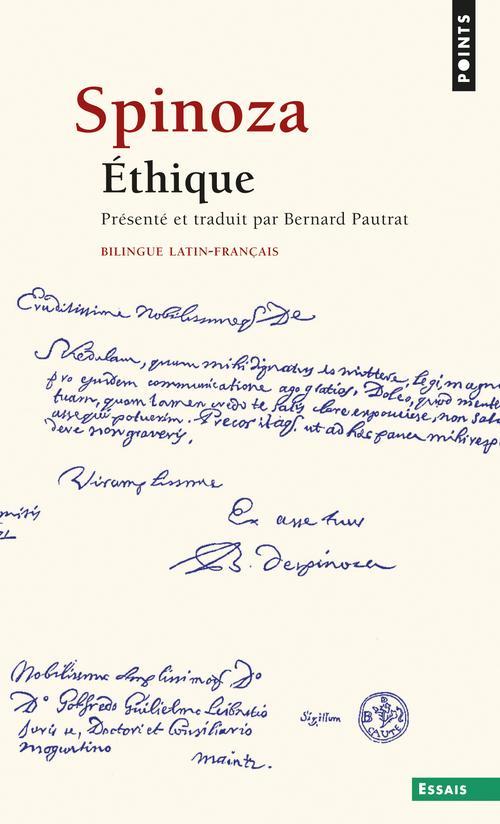 POINTS
Spinoza
Éthique
Présenté et traduit par Bernard Pautrat
BILINGUE LATIN-FRANÇAIS
Eruditissime Nobilissimeqz De
Schedulam, quam mihi dignatus es mittere, legi, magna
pro ejusdem communicatione ago gratias, Doleo, quod mente
tuam, quam tamen credo te satis clare exposuisse, non sat
assequi potuerim. Precor itaqz ut ad hæc pauca mihi resp
ne graveris.
Viramplissime
Ex asse tuus
B. despinoza
Nobilissimo Amplissimoqz Do
Do Gotfredo Guilielmo Leibnitio
Juris u, Doctori et Consiliario
Moguntino
Maintz.
Sigillum
B D S
CAUTE
ESSAIS